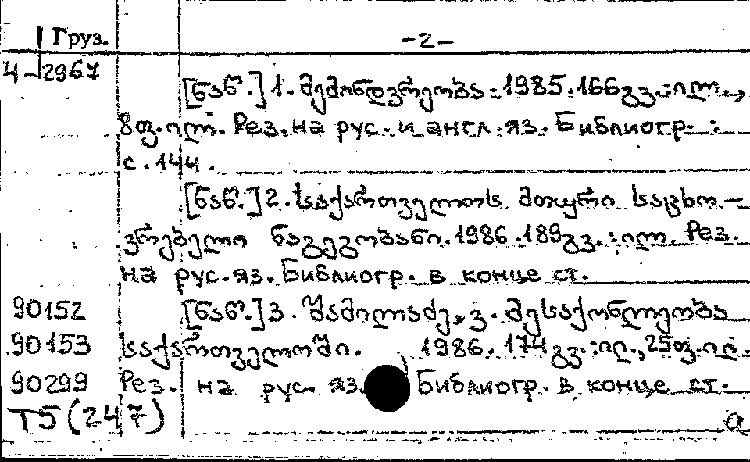 Груз. -2-
4-2967
[ნაწ.] 1. მემინდვრეობა. 1985. 166 გვ.: ილ.,
8 ფ. ილ. Рез. на рус. и англ. яз. Библиогр.:
с. 144.
[ნაწ.] 2. საქართველოს მთური საცხო-
ვრებელი ნაგებობანი. 1986. 189 გვ.: ილ. Рез.
на рус. яз. Библиогр. в конце ст.
90152 [ნაწ.] 3. შამილაძე, ვ. მესაქონლეობა
90153 საქართველოში. 1986. 174 გვ.: ილ., 25 ფ. ილ.
90299 Рез. на рус. яз. Библиогр. в конце ст.
Т5 (247) a